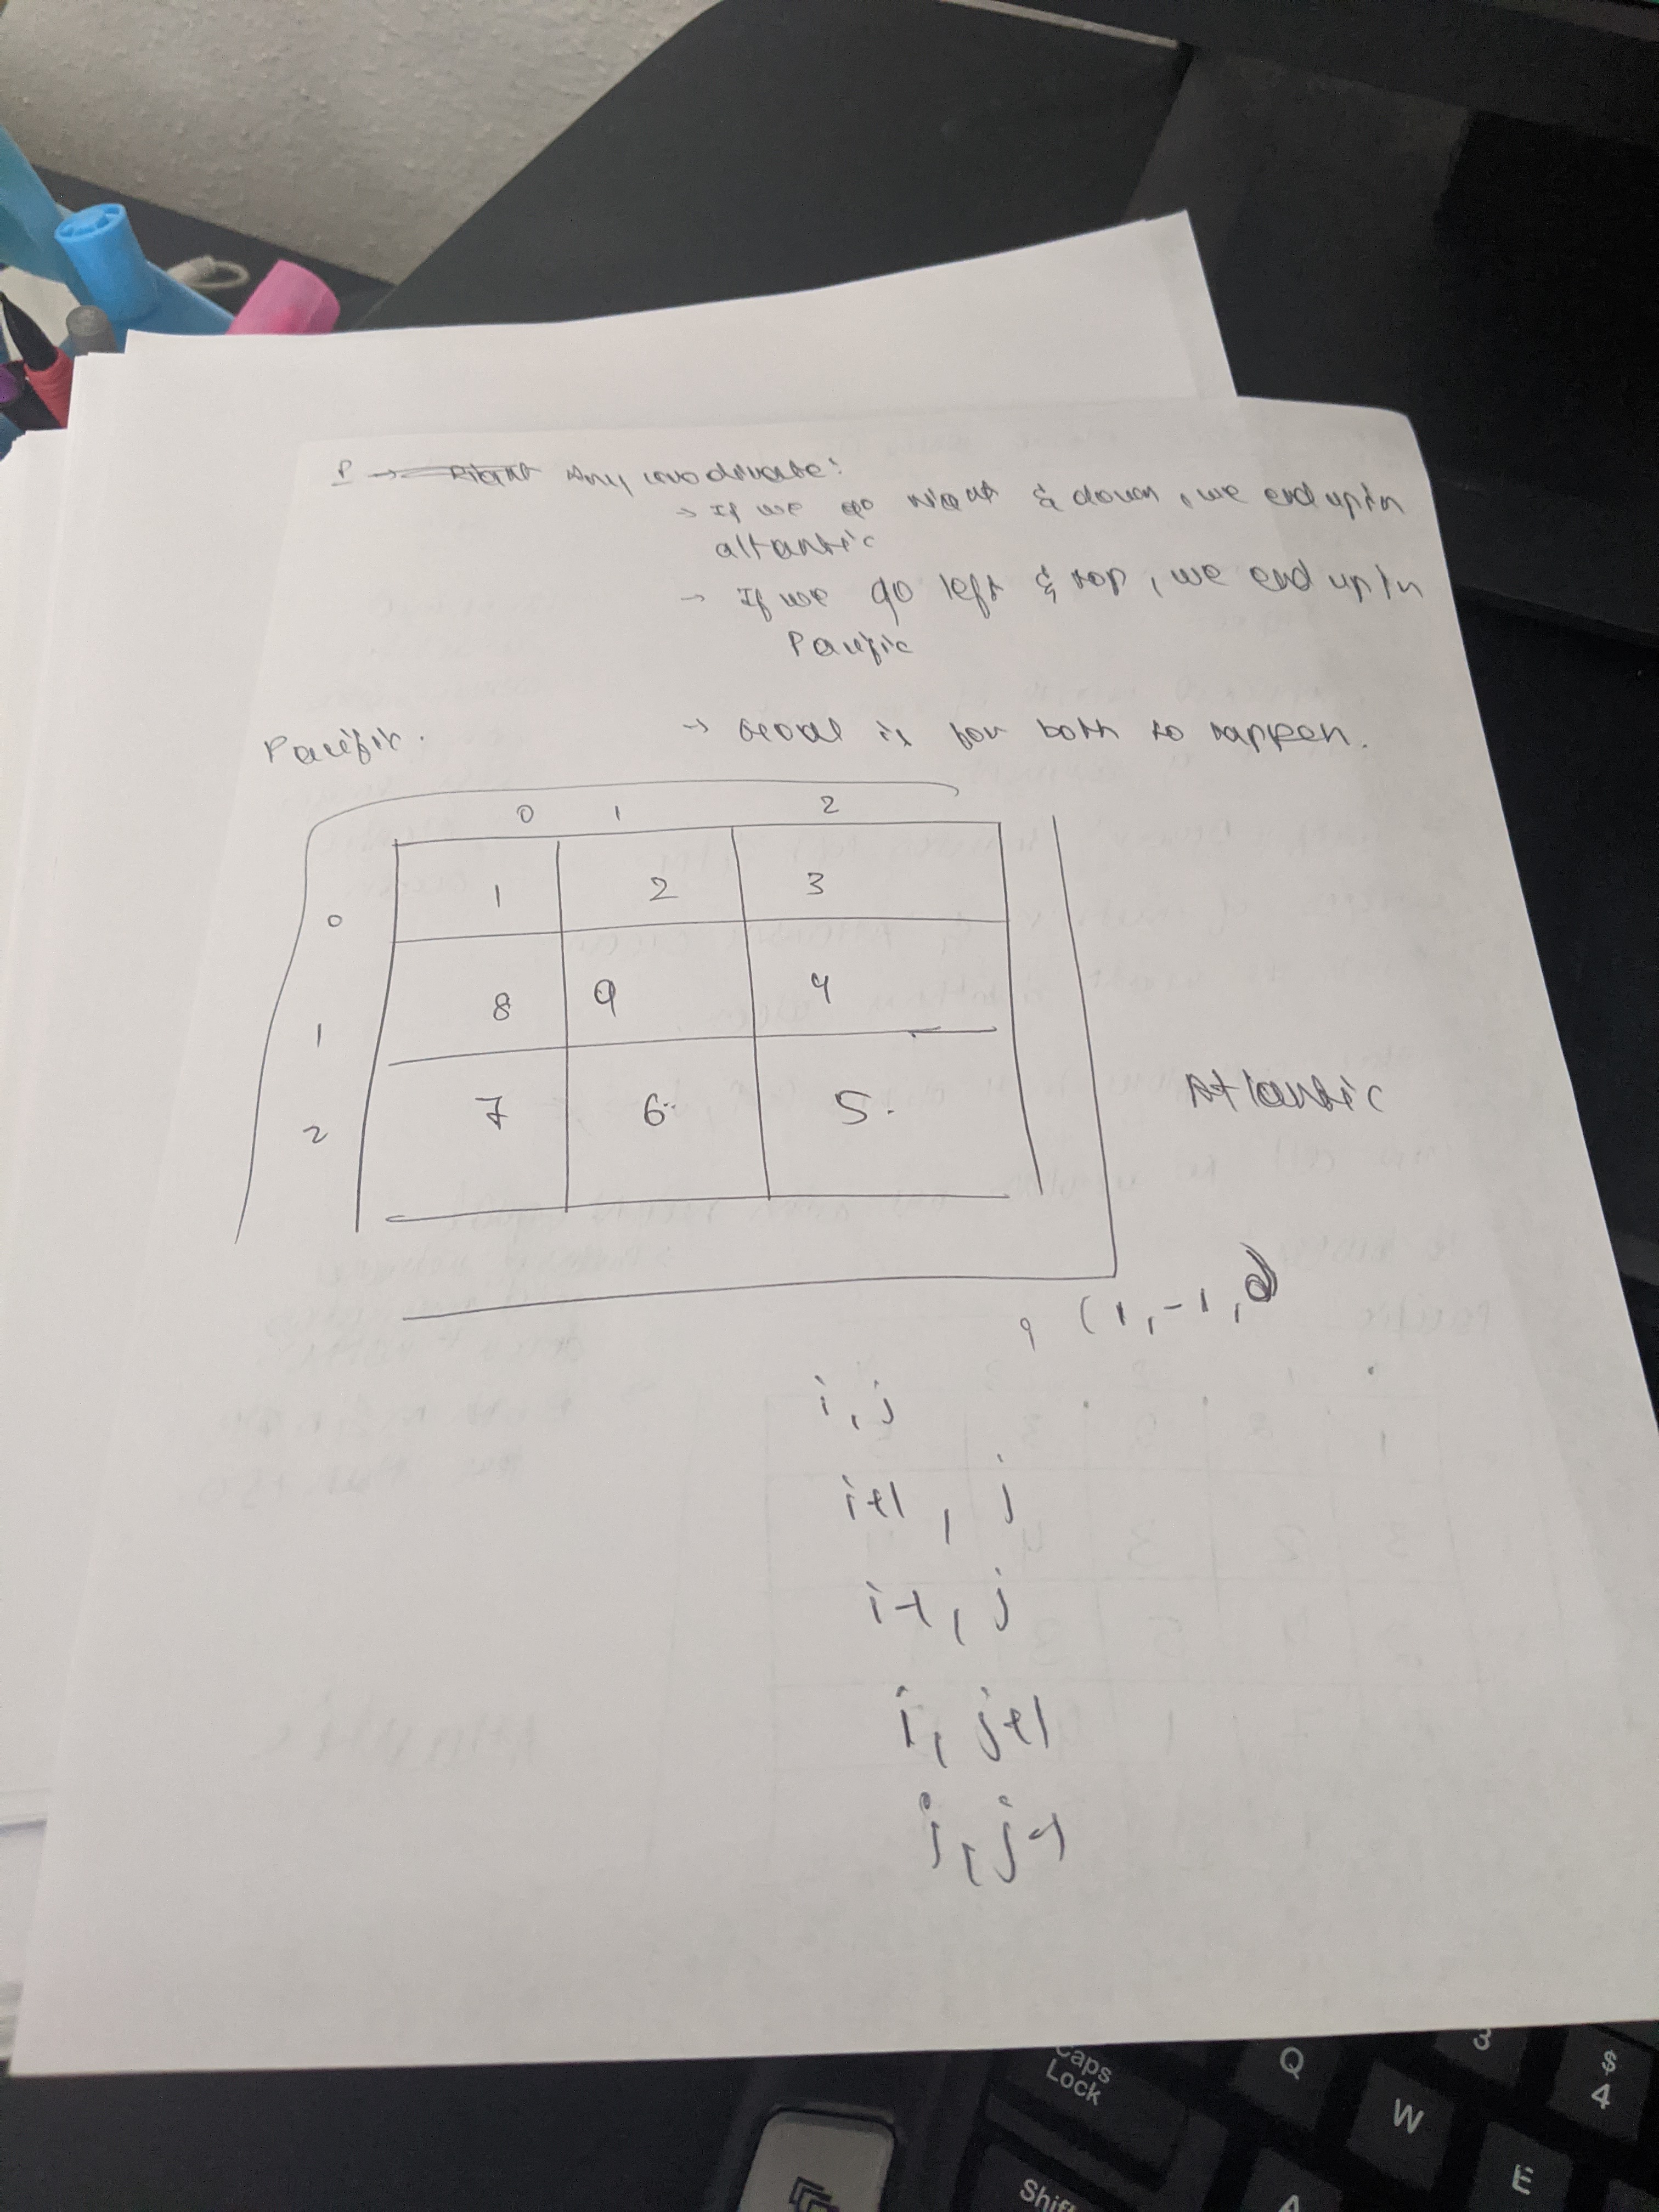 P → Right Any coordinate:
→ If we go right & down, we end up in
altantic
→ If we go left & top, we end up in
Pacific
→ Goal is for both to happen.
Pacific.
0 1 2
0 1 2 3
1 8 9 4
2 7 6 5
Atlantic
9 (1, -1,
i, j
i+1, j
i-1, j
i, j+1
i, j-1
Caps
Lock
Q
3
$
4
W
E
Shift
A